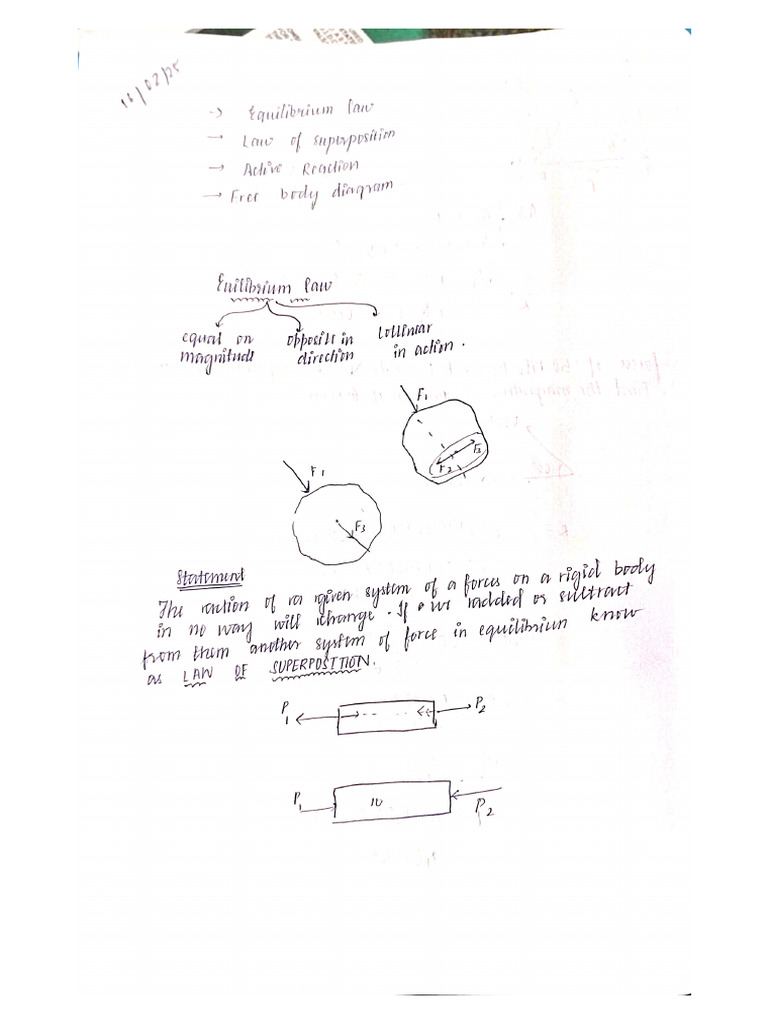 16/02/25
-> Equilibrium law
→ Law of superposition
→ Active Reaction
→ Free body diagram
Euilibrium law
equal on magnitude
opposite in direction
collinear in action.
F1
F3
F2
F1
F3
Statement
The action of a given system of a forces on a rigid body
in no way will change. If we added or subtract
from them another system of force in equilibrium know
as LAW OF SUPERPOSITION.
P1
P2
P1
P2